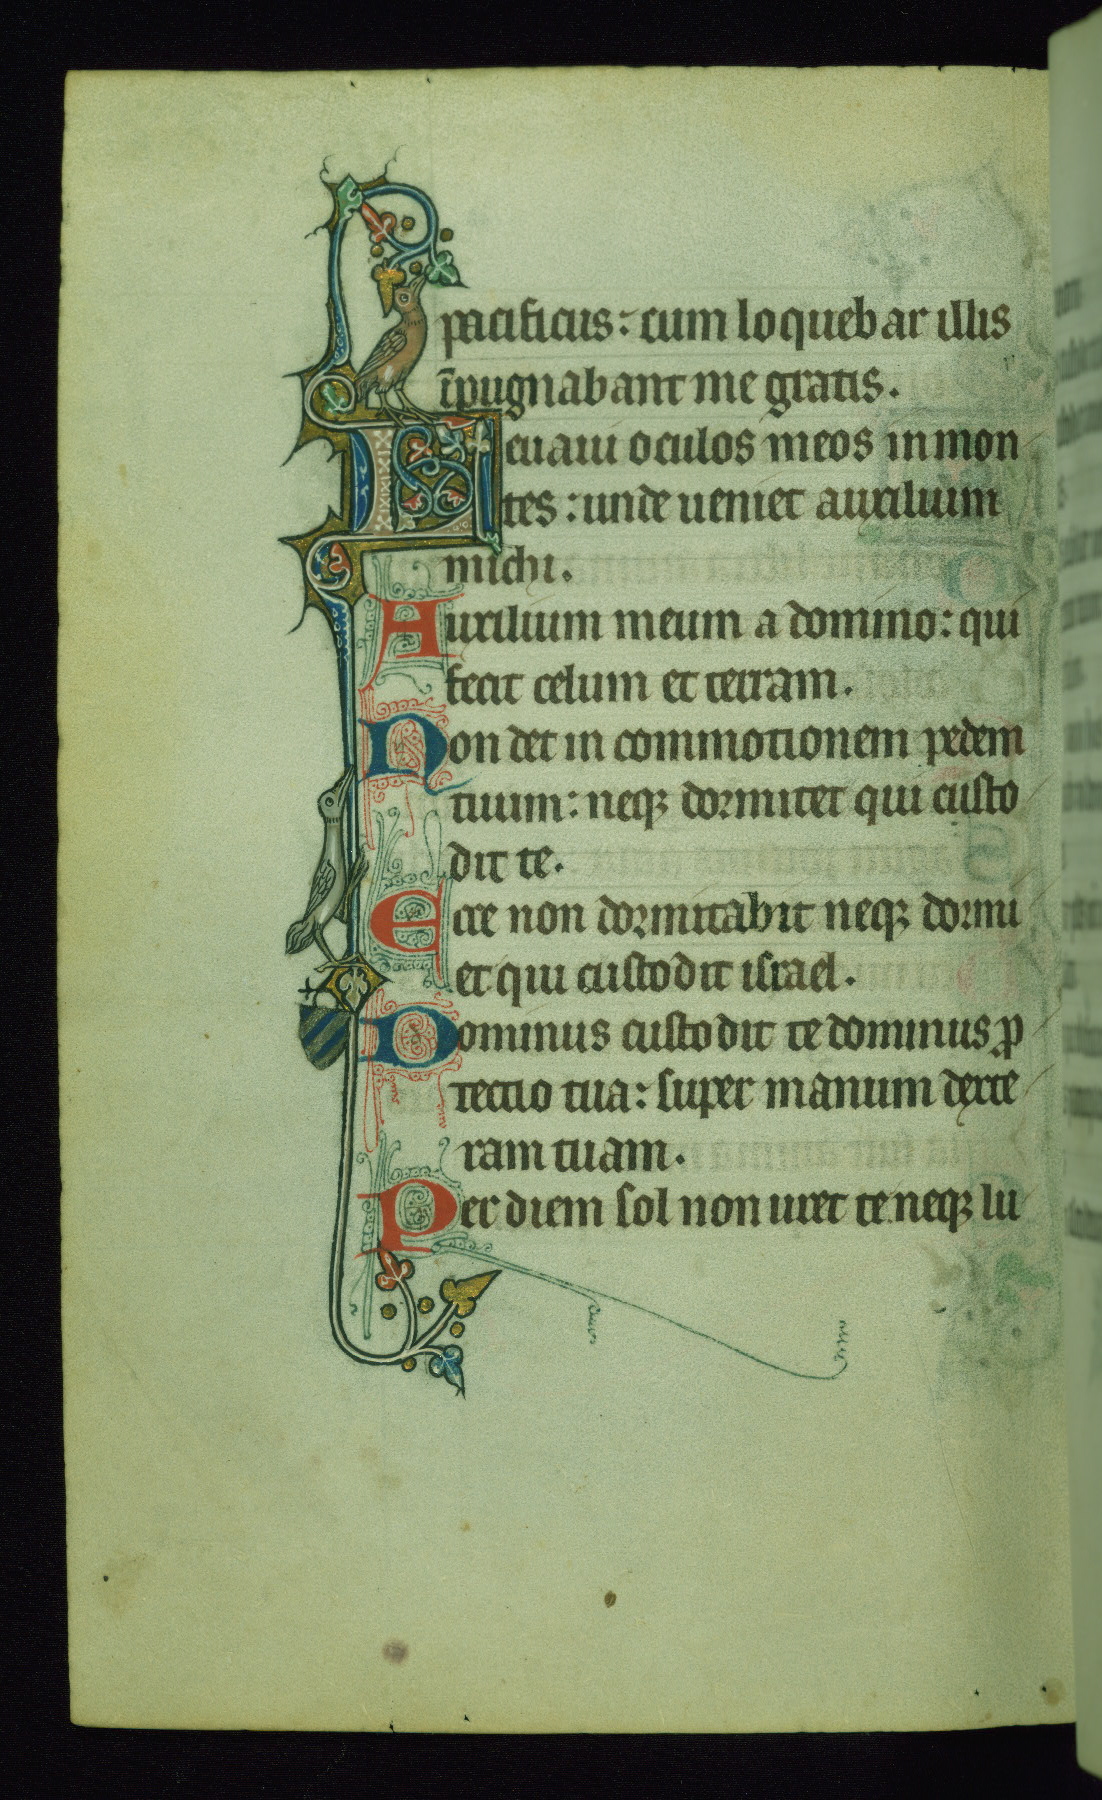 pacificus: cum loquebar illis
īpugnabant me gratis.
Leuaui oculos meos in mon
tes: unde ueniet auxilium
michi.
Auxilium meum a domino: qui
fecit celum et terram.
Non det in commotionem pedem
tuum: neqꝫ dormitet qui custo
dit te.
Ecce non dormitabit neqꝫ dormi
et qui custodit israel.
Dominus custodit te dominus ꝓ
tectio tua: super manum dexte
ram tuam.
Per diem sol non uret te neqꝫ lu